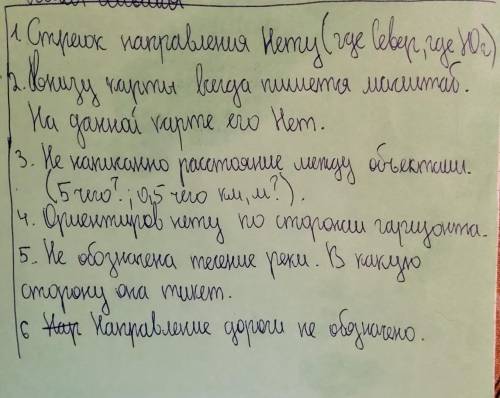 1. Стрелок направления Нету (где Север, где Юг)
2. Внизу карты всегда пишется масштаб.
На данной карте его Нет.
3. Не написанно расстояние между объектами.
(5 чего?; 0,5 чего км, м?).
4. Ориентиров нету по сторонам гаризонта.
5. Не обозначена течение реки. В какую
сторону она тикет.
6 Нап Направление дороги не обозначено.